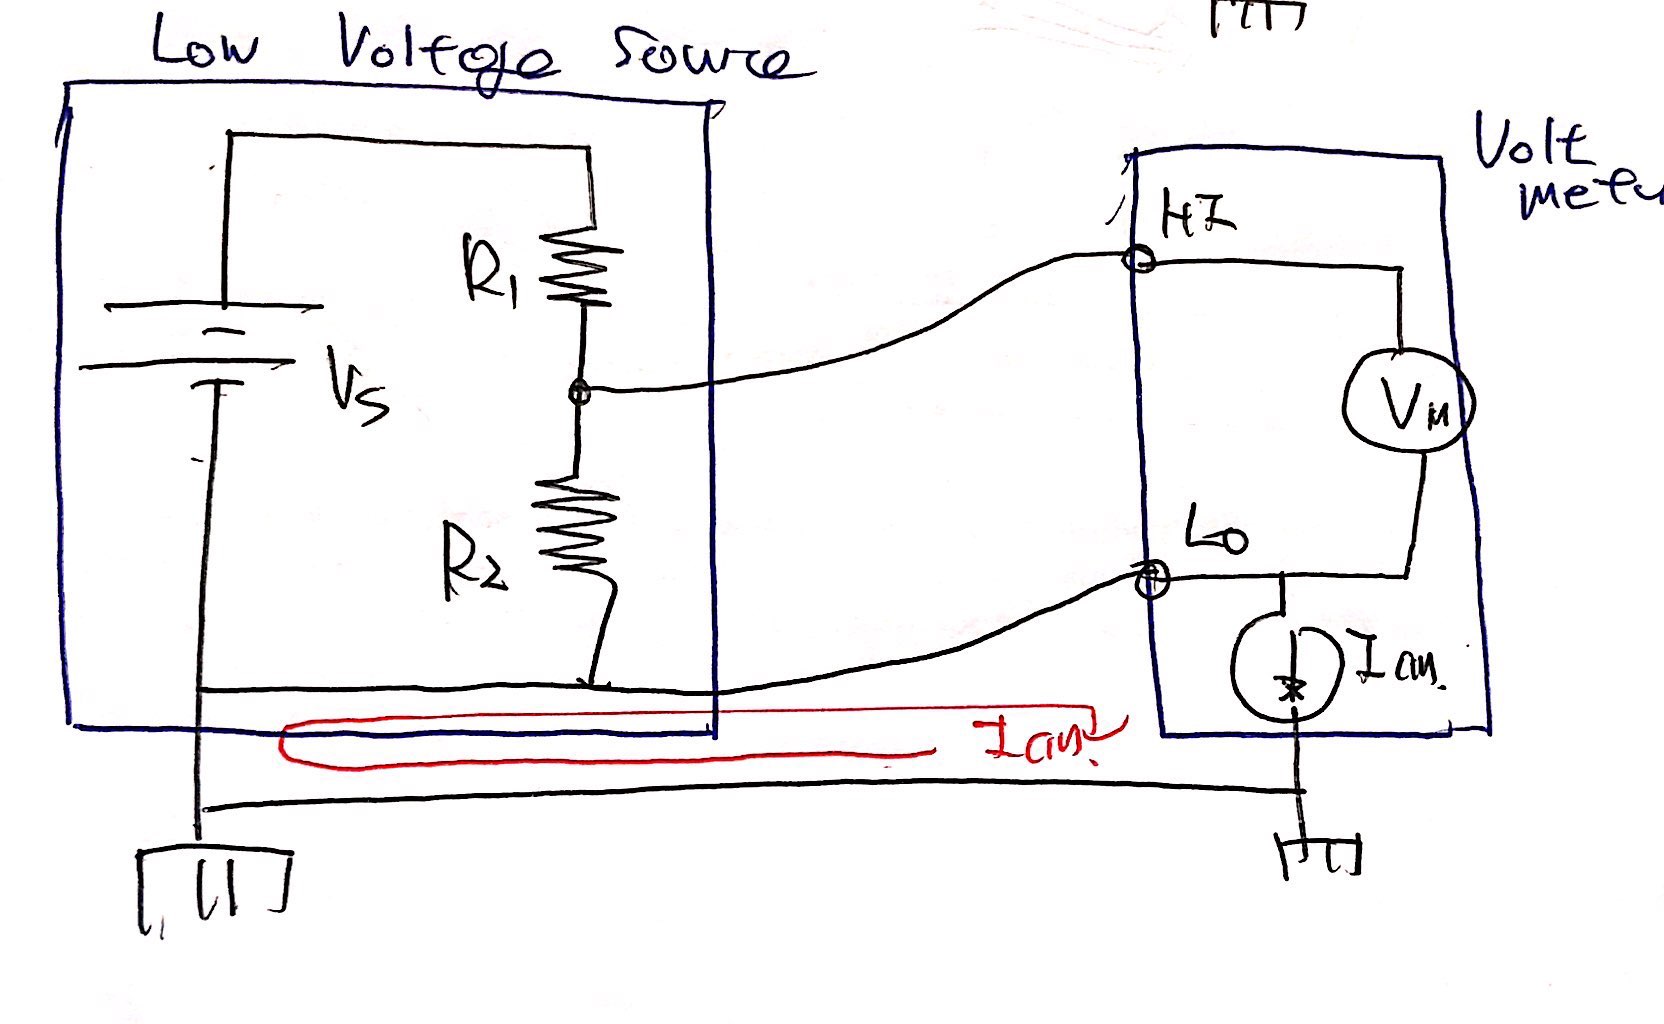 Low Voltage Source
Volt
meter
HI
R1
VS
VM
LO
R2
I cm.
I cm.